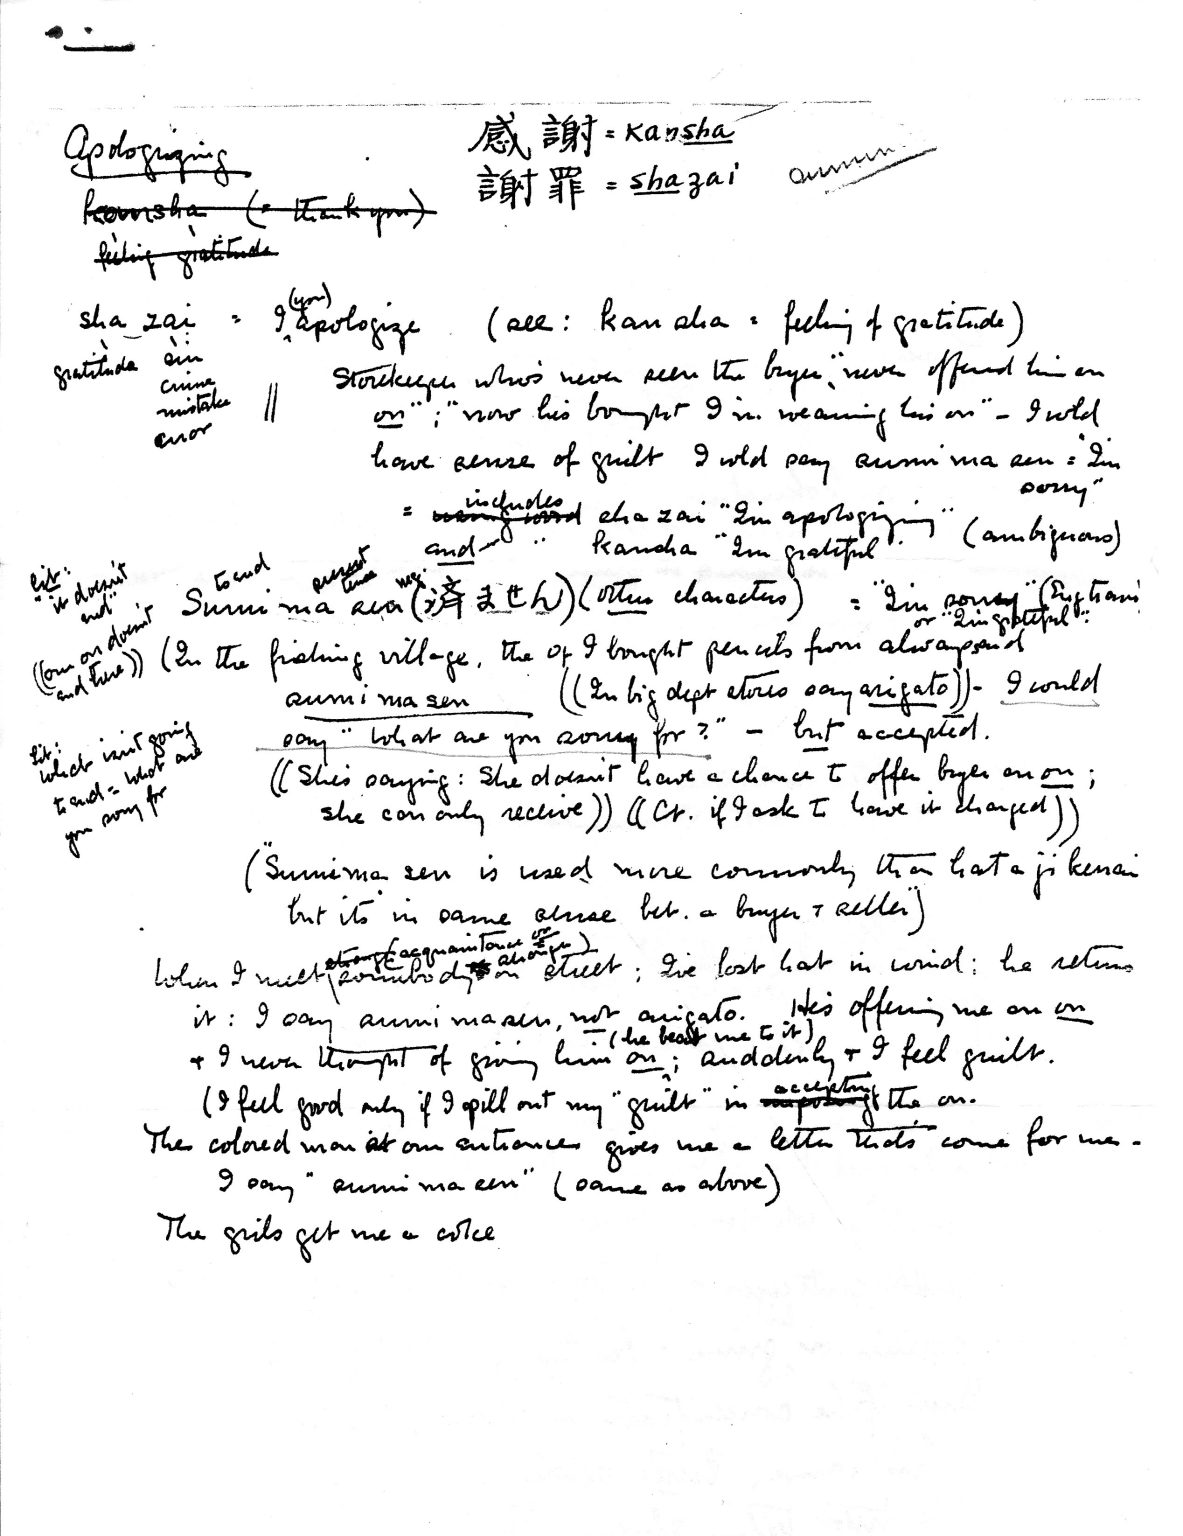 Apologizing
感謝 = kansha
謝罪 = shazai
kansha (= thank you)
feeling gratitude
sha zai = I (you) apologize (see: kansha = feeling of gratitude)
gratitude sin
crime
mistake
error
Storekeeper who's never seen the buyer, "never offered him an
on"; "now his bought I'm wearing his on" – I wld
have sense of guilt I wld say sumimasen = "I'm
sorry"
= includes shazai "I'm apologizing"
and " kansha "I'm grateful" (ambiguous)
lit:
"it doesn't
end"
((our on doesn't
end here))
to end present tense neg.
Sumimasen (済ません) (often characters) = "I'm sorry" (Eng trans
or "I'm grateful".
(In the fishing village, the I bought pencils from always said
sumimasen ((In big dept stores say arigato)) – I could
say "What are you sorry for?" – but accepted.
lit:
which isn't going
to end = what are
you sorry for
((She's saying: She doesn't have a chance to offer buyer an on;
she can only receive)) ((Cf. if I ask to have it charged))
("Sumimasen is used more commonly than katajikenai
but it's in same sense bet. a buyer + seller")
When I meet (acquaintance or stranger) somebody on street; I've lost hat in wind; he returns
it: I say sumimasen, not arigato. He's offering me an on
+ I never thought of giving him on; (he beat me to it) suddenly + I feel guilt.
(I feel good only if I spill out my "guilt" in accepting the on.
The colored man at our entrances gives me a letter that's come for me –
I say "sumimasen" (same as above)
The girls get me a coke